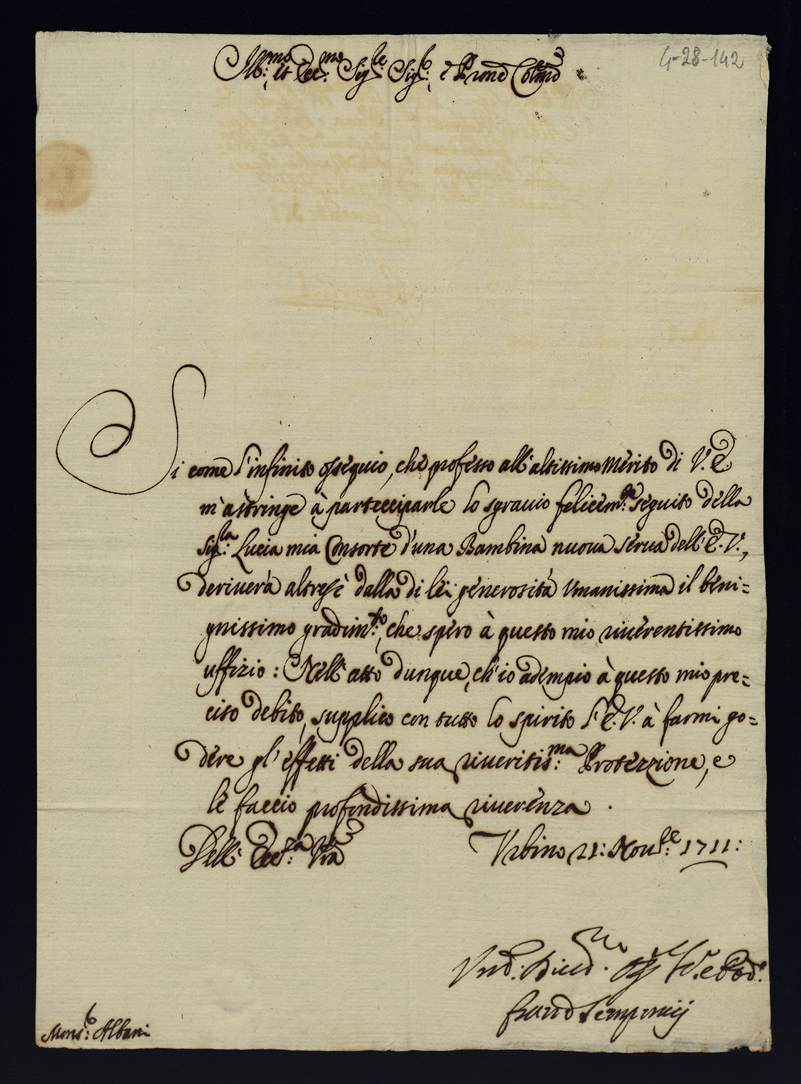 Ill:mo et Ecc:mo Sig:re Sig:re e Prone Colmo
4-28-142
Si come l'infinito ossequio, che professo all'altissimo Merito di V. E
m'astringe à parteciparle lo sgravio felicem:te seguito della
Sig:ra Lucia mia Consorte d'una Bambina nuova serva dell'E. V.,
deriverà altresì dalla di lei generosità Umanissima il beni-
gnissimo gradim:to, che spero à questo mio riverentissimo
uffizio: Nell'atto dunque, ch'io adempio à questo mio pre-
ciso debito, supplico con tutto lo spirito l'E. V. à farmi go-
dere gl'effetti della sua riveritis:ma Protezzione, e
le faccio profondissima riverenza.
Dell' Ecc:a Vra
Urbino 21: Nov:re 1711:
Semproni
Mons:r Albani